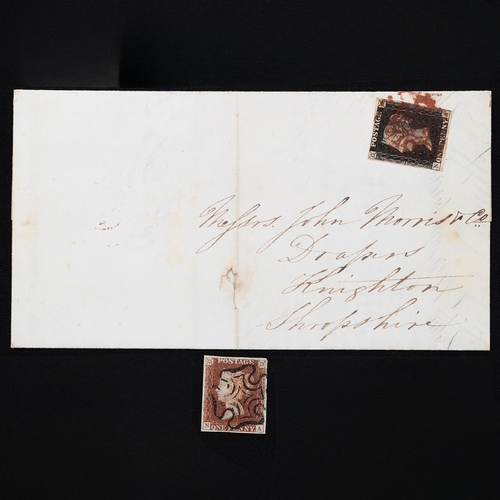 POSTAGE
ONE PENNY
Messrs. John Morris & Co
Drapers
Knighton
Shropshire
POSTAGE
N ONE PENNY A